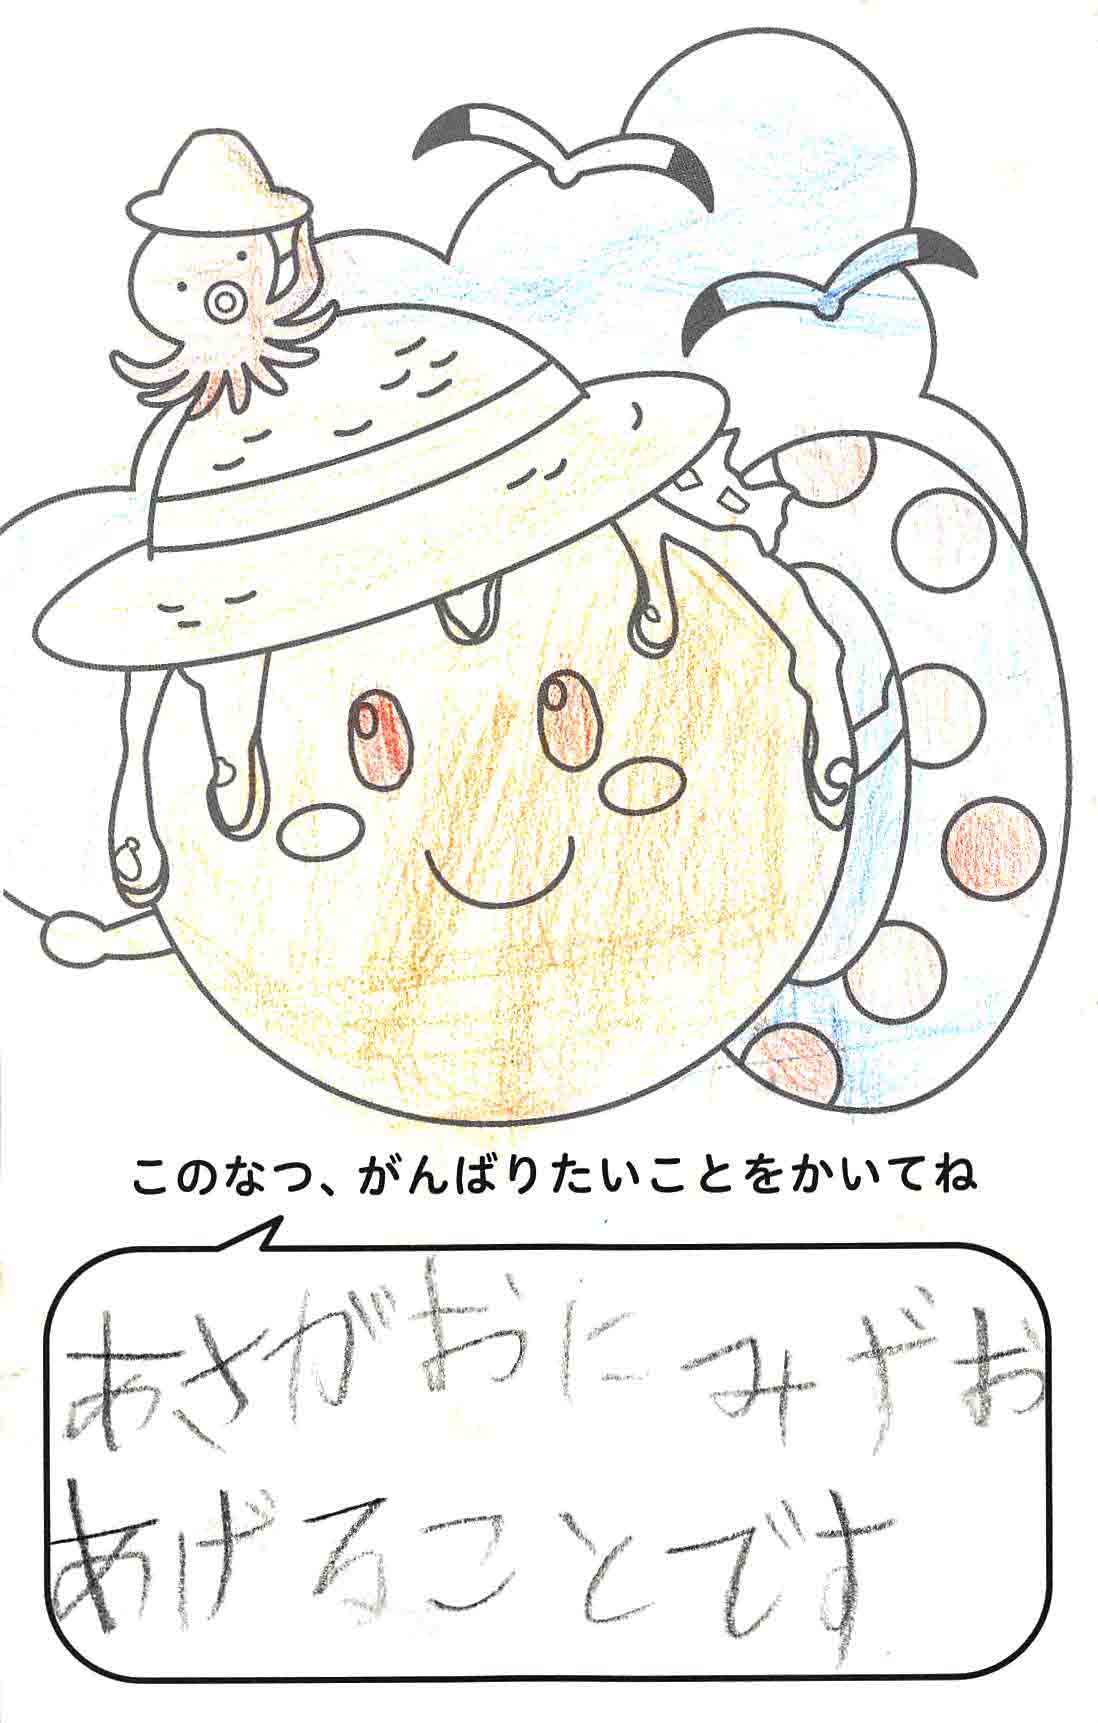 このなつ、がんばりたいことをかいてね
あさがおにみずお
あげることです